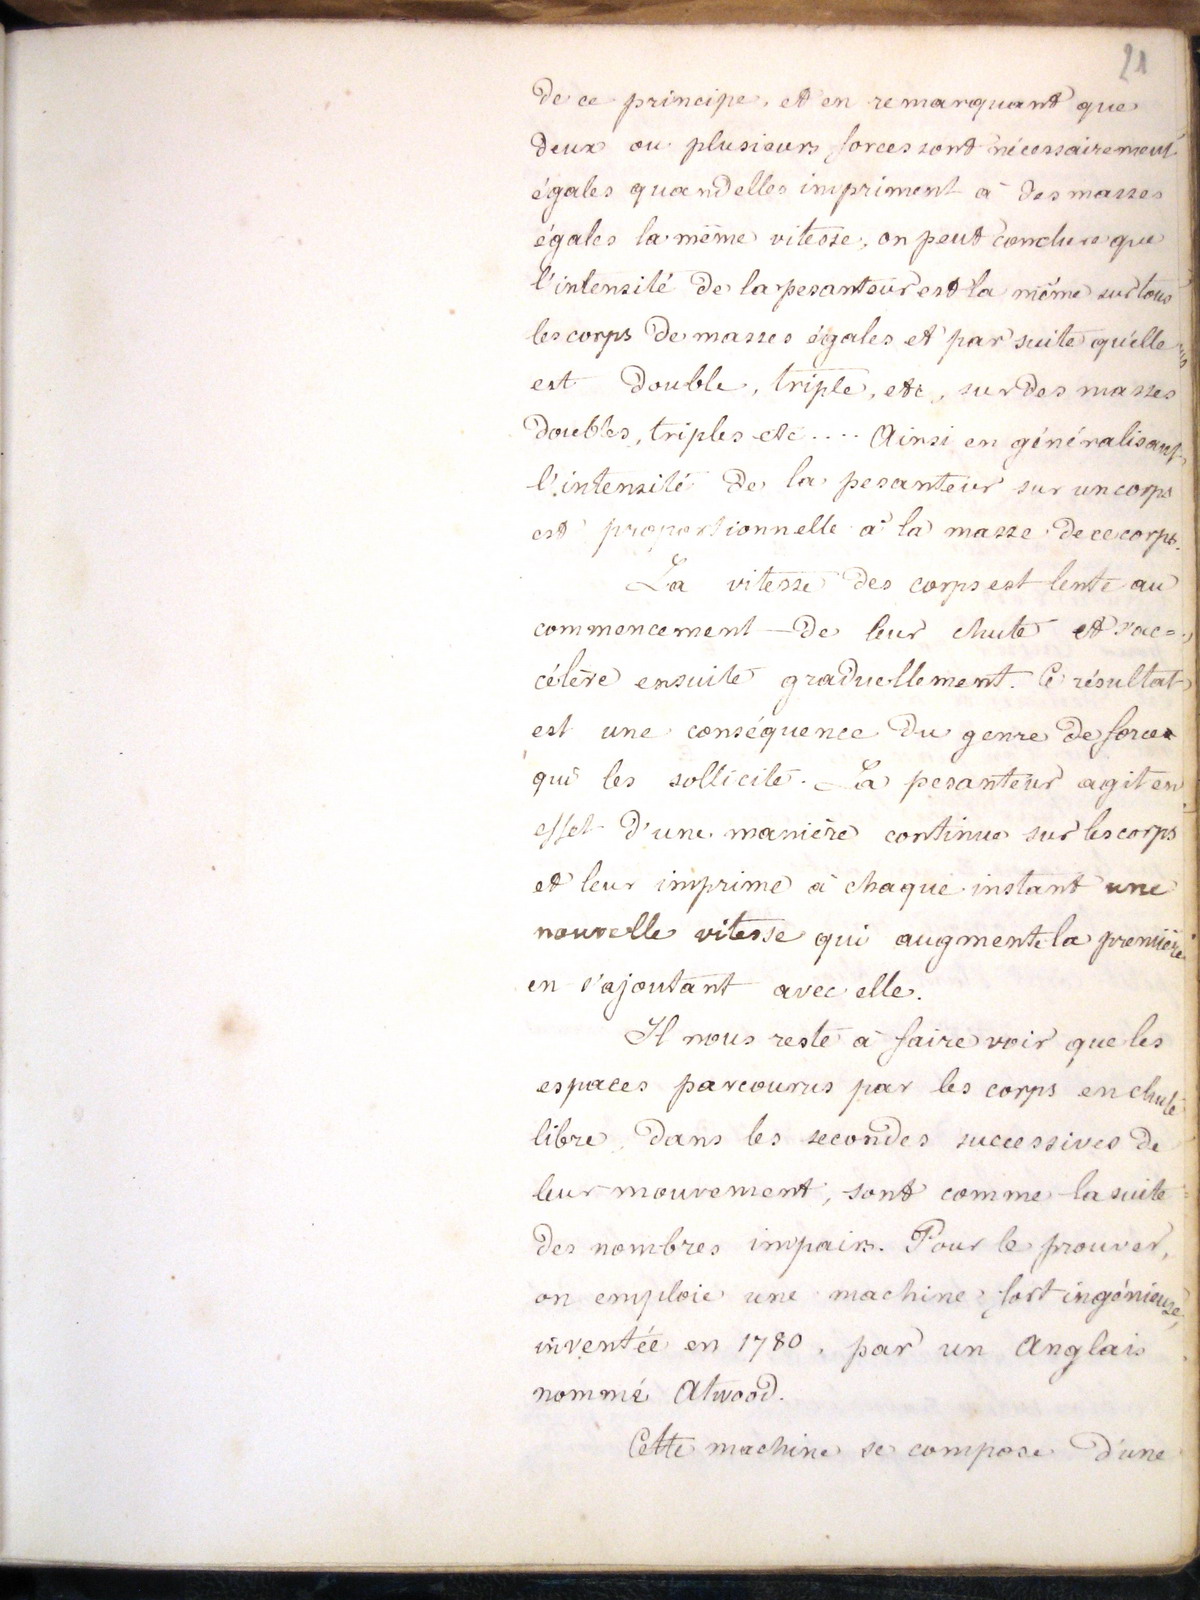 21
de ce principe, et en remarquant que
deux ou plusieurs forces sont nécessairement
égales quand elles impriment à des masses
égales la même vitesse, on peut conclure que
l'intensité de la pesanteur est la même sur tous
les corps de masses égales et par suite qu'elle
est double, triple, etc, sur des masses
doubles, triples etc.... Ainsi en généralisant
l'intensité de la pesanteur sur un corps
est proportionnelle à la masse de ce corps.
La vitesse des corps est lente au
commencement de leur chute et s'ac=
célère ensuite graduellement. Ce résultat
est une conséquence du genre de force
qui les sollicite. La pesanteur agit en
effet d'une manière continue sur les corps
et leur imprime à chaque instant une
nouvelle vitesse qui augmente la première
en s'ajoutant avec elle.
Il nous reste à faire voir que les
espaces parcourus par les corps en chute
libre, dans les secondes successives de
leur mouvement, sont comme la suite
des nombres impairs. Pour le prouver,
on emploie une machine fort ingénieuse,
inventée en 1780, par un Anglais
nommé Atwood.
Cette machine se compose d'une